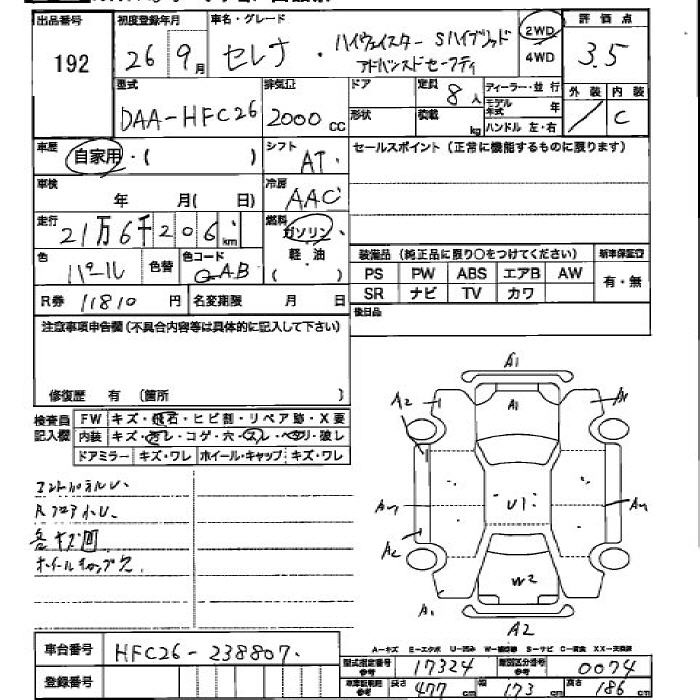 出品番号 192
初度登録年月 26 9月
車名・グレード セレナ・ハイウェイスター Sハイブリッド
アドバンスドセーフティ
2WD
4WD
評価点 3.5
型式 DAA-HFC26
排気量 2000 cc
ドア
形状
定員 8人
積載 kg
ディーラー・並行
モデル年式 年
ハンドル 左・右
外装 /
内装 C
車歴 自家用・( )
シフト AT
セールスポイント(正常に機能するものに限ります)
車検 年 月( 日)
冷房 AAC
走行 21万6千206 km
燃料 ガソリン
軽・油
( )
色 パール
色替
色コード QAB
装備品(純正品に限り○をつけてください)
新車保証書
PS PW ABS エアB AW
SR ナビ TV カワ
有・無
R券 11810 円
名変期限 月 日
後日品
注意事項申告欄(不具合内容等は具体的に記入して下さい)
修復歴 有 (箇所 )
検査員記入欄
FW キズ・飛石・ヒビ割・リペア跡・X要
内装 キズ・汚レ・コゲ・穴・スレ・ヘタリ・破レ
ドアミラー キズ・ワレ ホイール・キャップ キズ・ワレ
各キズ凹
ホイールキャップ欠
A1
A2 A1 A1
U1
A2
W2
A1
A2
A-キズ E-エクボ U-凹み W-補修跡 S-サビ C-腐食 XX-交換済
車台番号 HFC26-238807
登録番号
型式指定番号 参考 17324
類別区分番号 参考 0074
車車証明用 参考
長さ 477 cm
幅 173 cm
高さ 186 cm